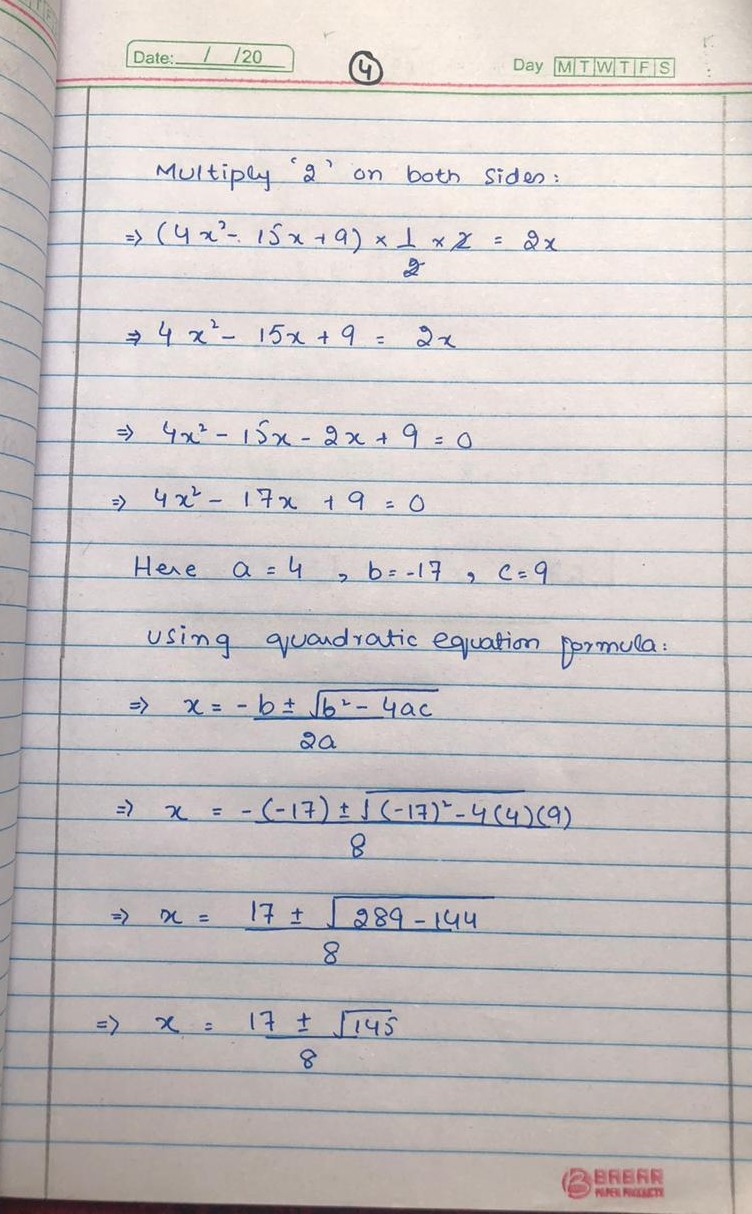 Date: / /20
4
Day M T W T F S
Multiply '2' on both sides:
⇒ (4x² - 15x + 9) × 1/2 × 2 = 2x
⇒ 4x² - 15x + 9 = 2x
⇒ 4x² - 15x - 2x + 9 = 0
⇒ 4x² - 17x + 9 = 0
Here a = 4 , b = -17 , c = 9
using quadratic equation formula:
⇒ x = -b ± √(b² - 4ac) / 2a
⇒ x = -(-17) ± √((-17)² - 4(4)(9)) / 8
⇒ x = 17 ± √(289 - 144) / 8
⇒ x = 17 ± √145 / 8
BABAR
PAPER PRODUCTS